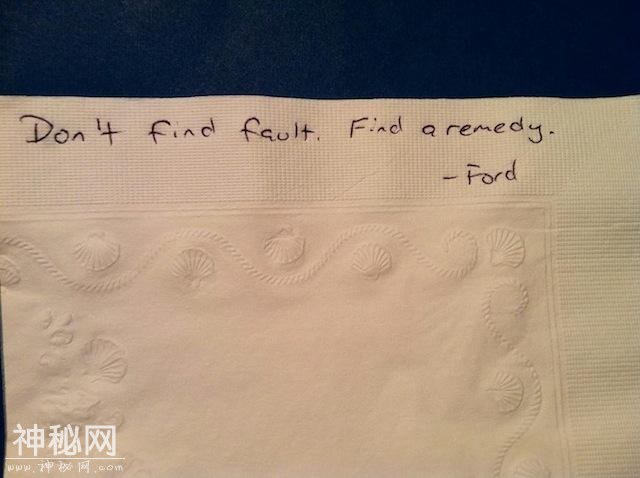 Don't find fault. Find a remedy.
-Ford
神秘网
www.神秘网.com